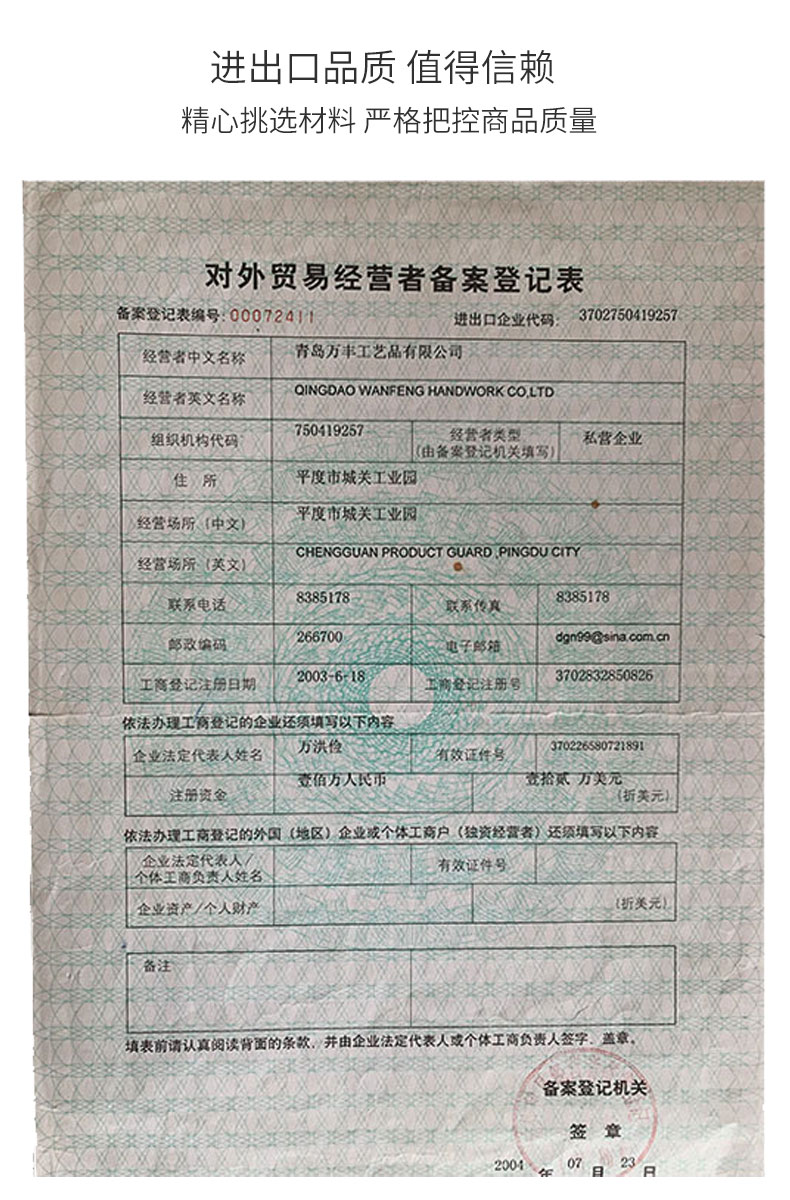 进出口品质 值得信赖
精心挑选材料 严格把控商品质量
对外贸易经营者备案登记表
备案登记表编号:00072411 进出口企业代码: 3702750419257
经营者中文名称 青岛万丰工艺品有限公司
经营者英文名称 QINGDAO WANFENG HANDWORK CO,LTD
组织机构代码 750419257 经营者类型 (由备案登记机关填写) 私营企业
住 所 平度市城关工业园
经营场所 (中文) 平度市城关工业园
经营场所 (英文) CHENGGUAN PRODUCT GUARD ,PINGDU CITY
联系电话 8385178 联系传真 8385178
邮政编码 266700 电子邮箱 dgn99@sina.com.cn
工商登记注册日期 2003-6-18 工商登记注册号 3702832850826
依法办理工商登记的企业还须填写以下内容
企业法定代表人姓名 万洪俭 有效证件号 370226580721891
注册资金 壹佰万人民币 壹拾贰 万美元 (折美元)
依法办理工商登记的外国 (地区) 企业或个体工商户 (独资经营者) 还须填写以下内容
企业法定代表人/ 有效证件号
个体工商负责人姓名
企业资产/个人财产 (折美元)
备注
填表前请认真阅读背面的条款, 并由企业法定代表人或个体工商负责人签字、盖章。
备案登记机关
签 章
2004 年 07 月 23 日